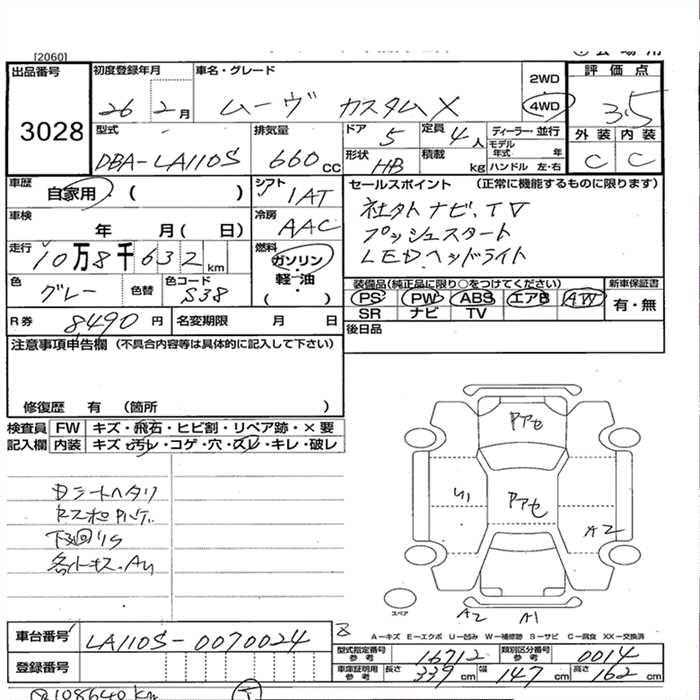 [2060]
出品番号
3028
初度登録年月
26 2月
車名・グレード
ムーヴ カスタムX
2WD
4WD
評価点
3.5
外装 内装
C C
型式
DBA-LA110S
排気量
660cc
ドア
5
定員
4人
形状
HB
積載
kg
ディーラー・並行
モデル年式 年
ハンドル 左・右
車歴
自家用・( )
シフト
IAT
車検
年 月( 日)
冷房
AAC
走行
10万8千632km
燃料
ガソリン・
軽・油
( )
色
グレー
色替
色コード
S38
R券 8,490円
名変期限 月 日
セールスポイント (正常に機能するものに限ります)
社外ナビ、TV
プッシュスタート
LEDヘッドライト
装備品(純正品に限り○をつけてください)
PS PW ABS エアB AW
SR ナビ TV
新車保証書
有・無
後日品
注意事項申告欄 (不具合内容等は具体的に記入して下さい)
修復歴 有 (箇所 )
検査員記入欄
FW キズ・飛石・ヒビ割・リペア跡・×要
内装 キズ・汚レ・コゲ・穴・スレ・キレ・破レ
Dシートヘタリ
下廻りS
各小キズ・AU
Pアセ
Pアセ
U1
A2
スペア
A2 A1
A-キズ E-エクボ U-凹み W-補修跡 S-サビ C-腐食 XX-交換済
車台番号
LA110S-0070024
登録番号
型式指定番号 参考
16712
類別区分番号 参考
0014
車庫証明用 参考
長さ 339cm
幅 147cm
高さ 162cm
108640km